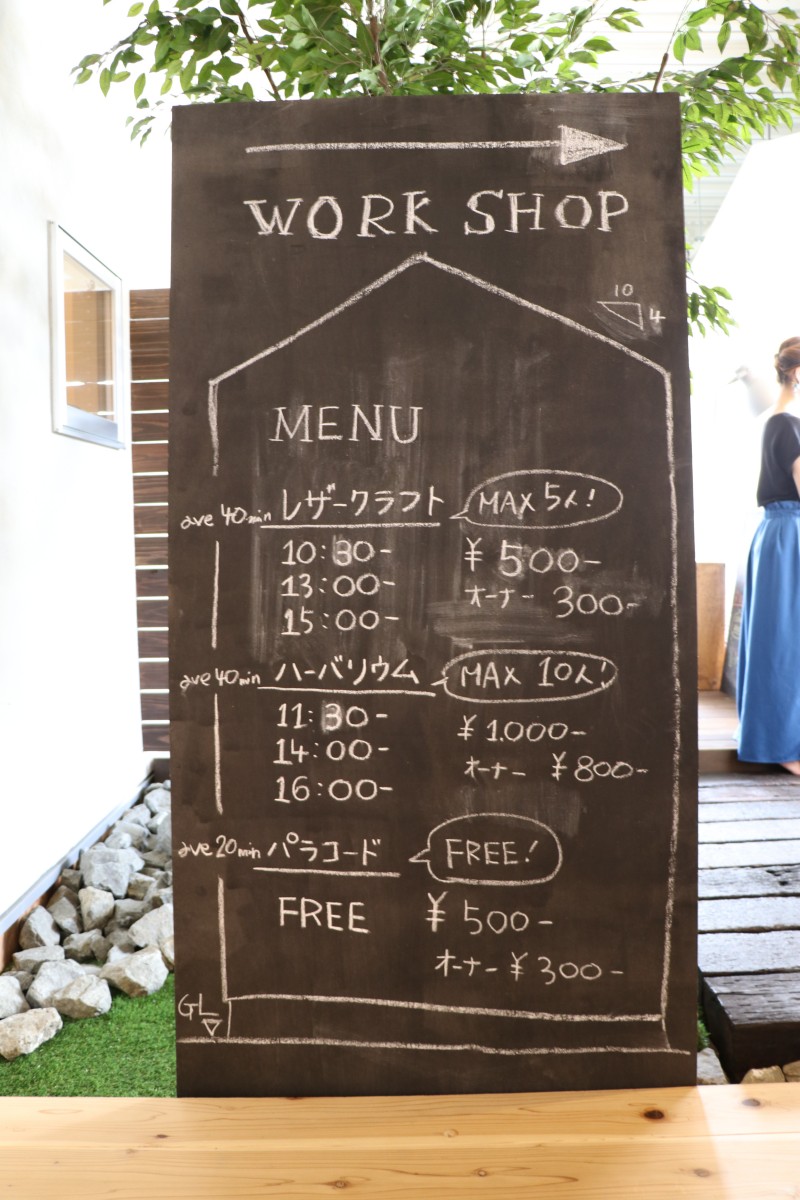 WORK SHOP
10
4
MENU
ave 40min レザークラフト MAX 5人!
10:30- ¥500-
13:00- オーナー 300-
15:00-
ave 40min ハーバリウム MAX 10人!
11:30- ¥1.000-
14:00- オーナー ¥800-
16:00-
ave 20min パラコード FREE!
FREE ¥500-
オーナー ¥300-
GL